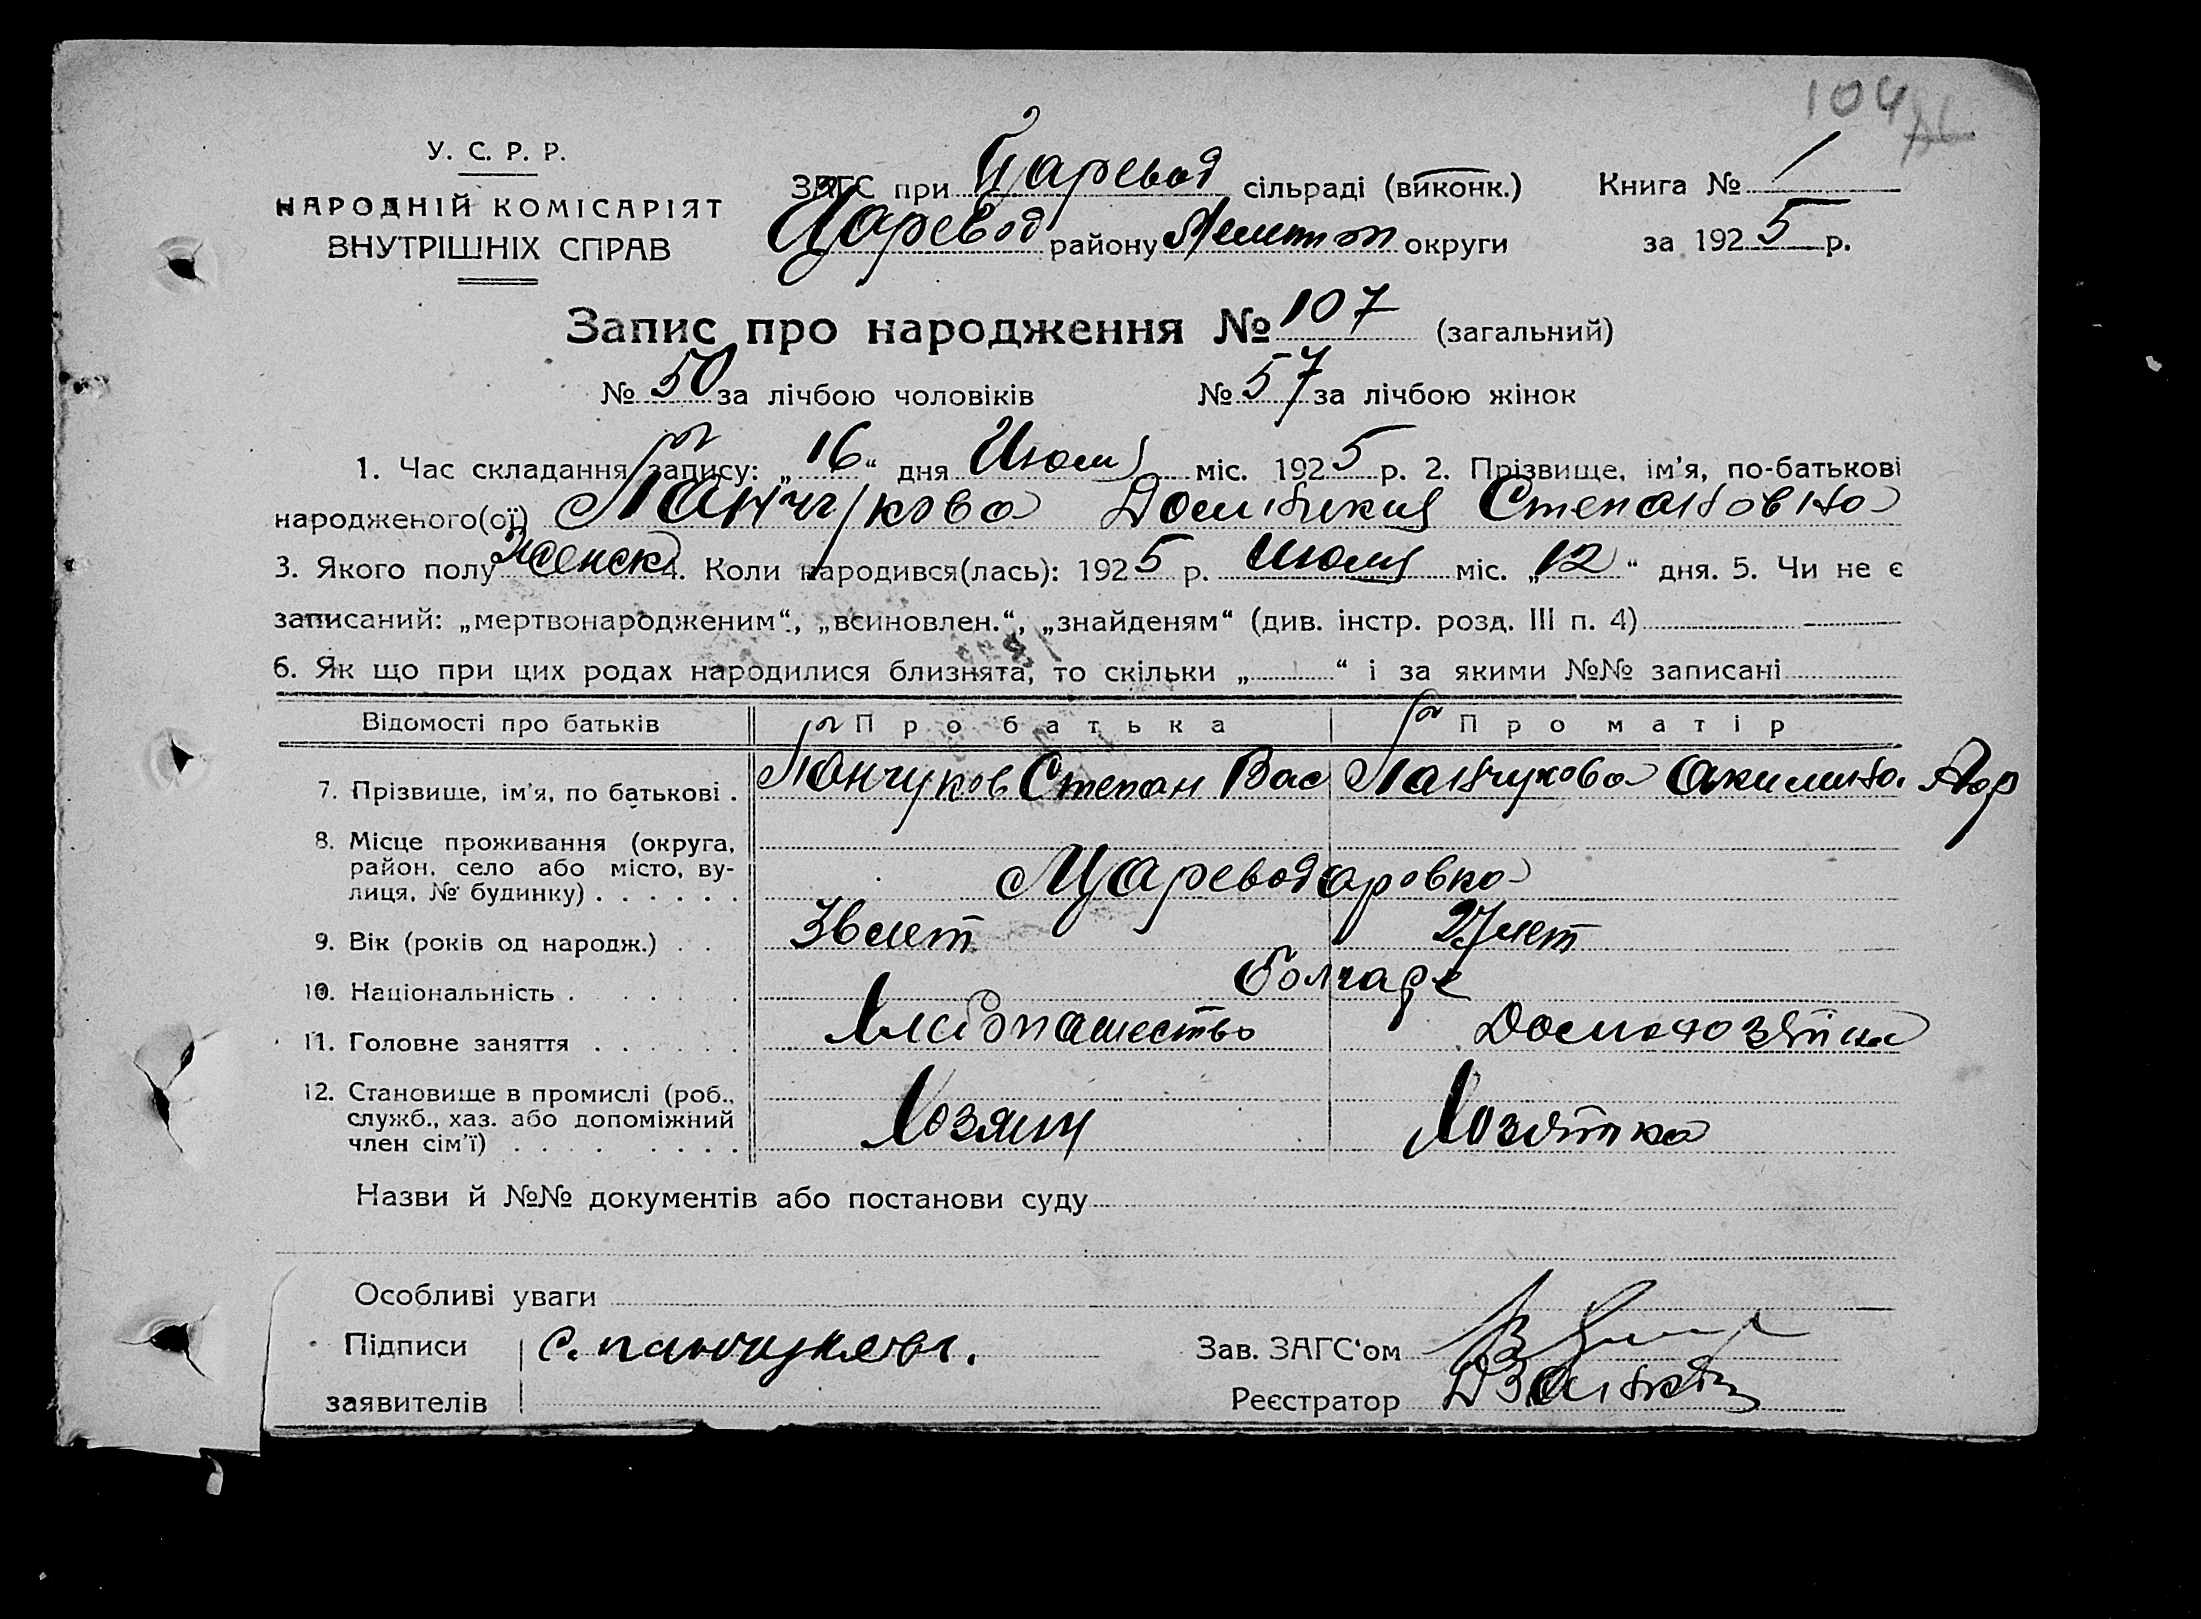 104
У. С. Р. Р.
НАРОДНІЙ КОМІСАРІЯТ
ВНУТРІШНІХ СПРАВ
ЗАГС при Царевод сільраді (виконк.)
Царевод району Мелитоп округи
Книга № 1
за 1925 р.
Запис про народження № 107 (загальний)
№ 50 за лічбою чоловіків № 57 за лічбою жінок
1. Час складання запису: „16“ дня Июля міс. 1925 р. 2. Прізвище, ім’я, по-батькові
народженого(ої) Панчукова Домникия Степановна
3. Якого полу Женск 4. Коли народився(лась): 1925 р. Июля міс. „12“ дня. 5. Чи не є
записаний: „мертвонародженим“, „всиновлен.“, „знайденям“ (див. інстр. розд. III п. 4)
6. Як що при цих родах народилися близнята, то скільки „ “ і за якими №№ записані
Відомості про батьків Про батька Про матір
7. Прізвище, ім’я, по батькові . Панчуков Степан Вас Панчукова Акилина
8. Місце проживання (округа,
район, село або місто, ву-
лиця, № будинку) . . . . . . Цареводаровка
9. Вік (років од народж.) . . 36 лет 27 лет
10. Національність . . . . . Болгаре
11. Головне заняття . . . . . . Хлебопашество Домохозяйка
12. Становище в промислі (роб.,
служб., хаз. або допоміжний
член сім’ї) . . . . . . . . Хозяин Хозяйка
Назви й №№ документів або постанови суду
Особливі уваги
Підписи С. Панчуковъ.
заявителів
Зав. ЗАГС‘ом
Реєстратор